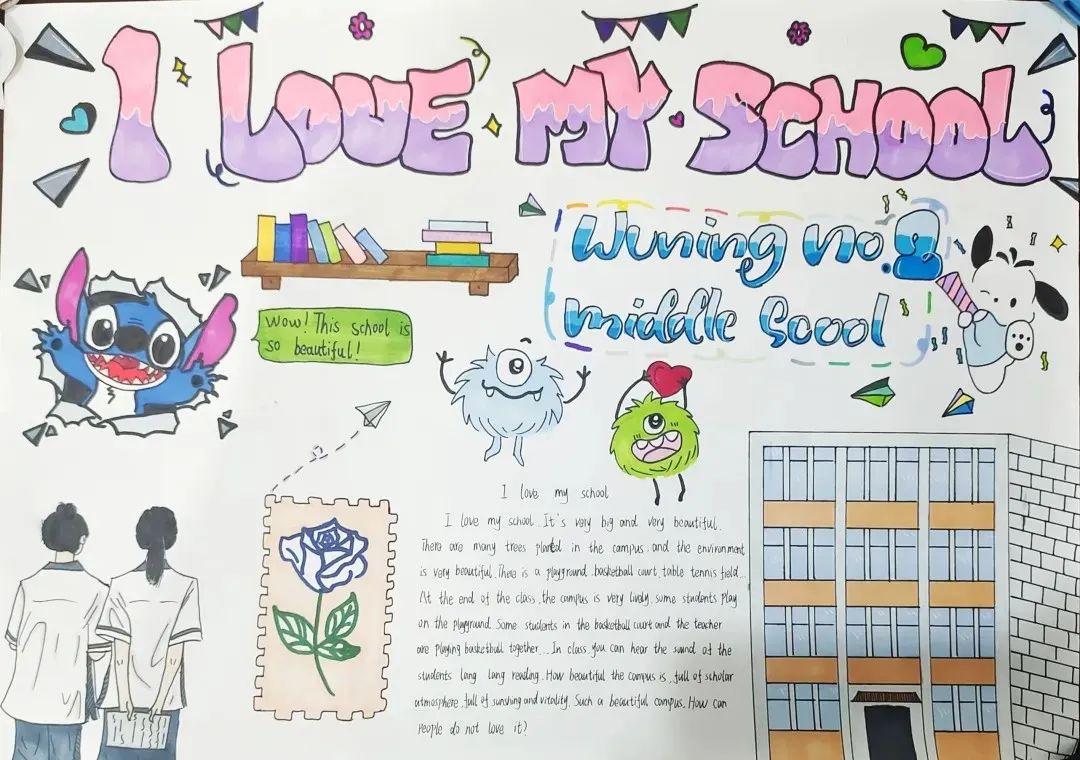 I LOVE MY SCHOOL
Wuning no.2
middle Scool
Wow! This school is
so beautiful!
I love my school
I love my school. It's very big and very beautiful.
There are many trees planted in the campus, and the environment
is very beautiful. There is a playground, basketball court, table tennis field...
At the end of the class, the campus is very lively, some students play
on the playground. Some students in the basketball court and the teacher
are playing basketball together... In class, you can hear the sound of the
students lang lang reading. How beautiful the campus is, full of scholar
atmosphere, full of sunshing and vitality. Such a beautiful campus. How can
people do not love it?